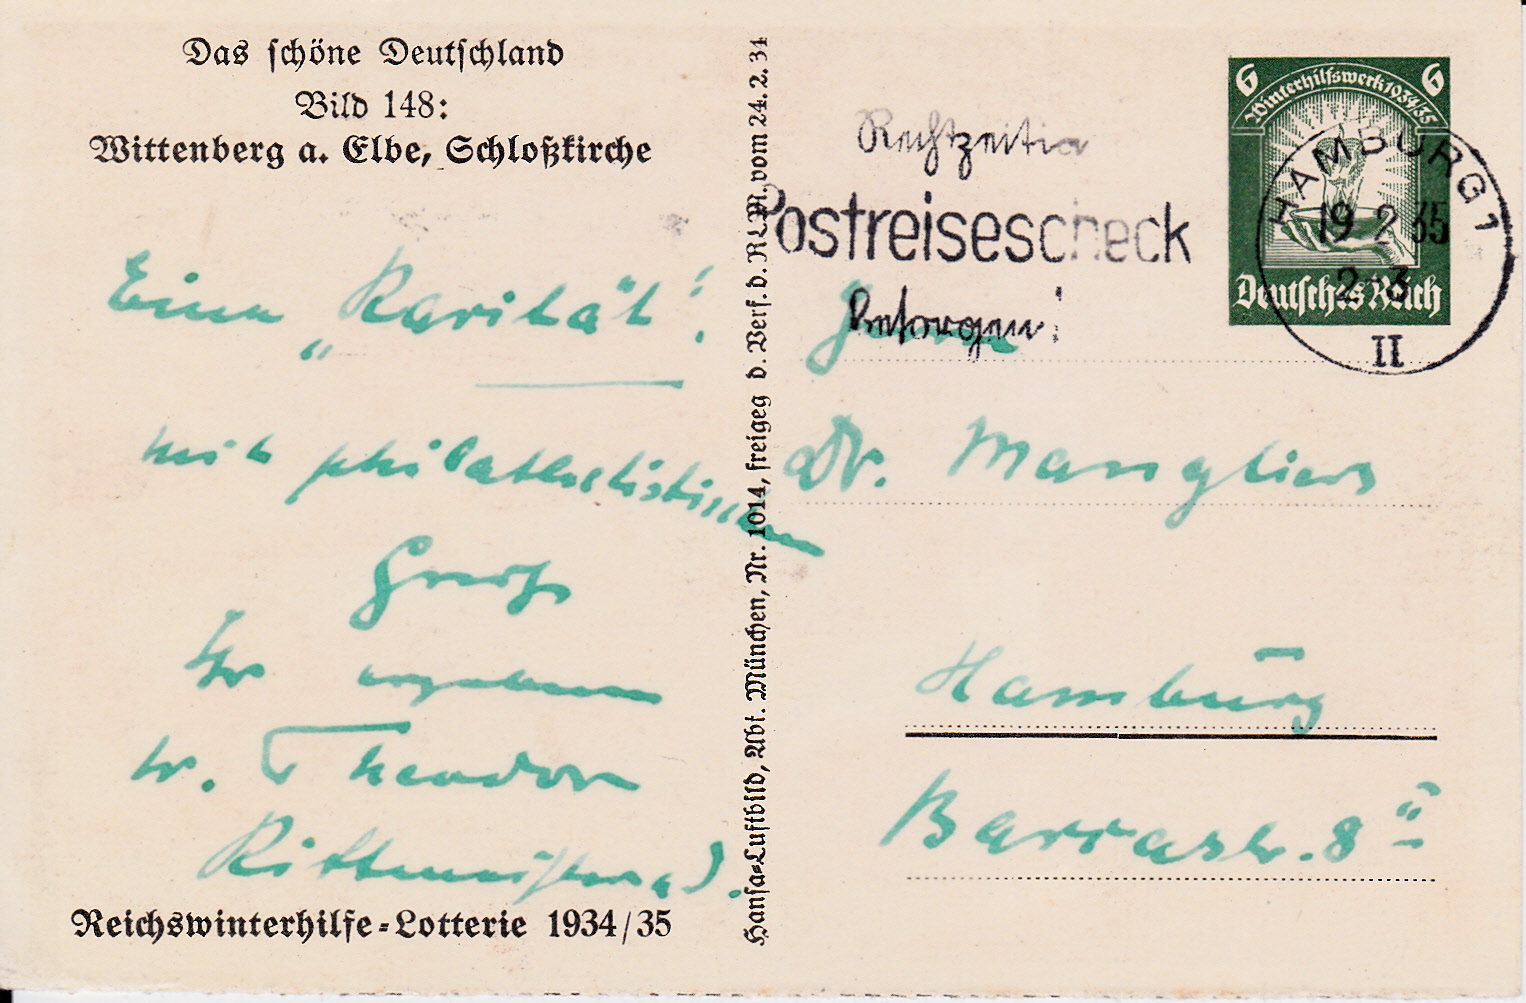 Das schöne Deutschland
Bild 148:
Wittenberg a. Elbe, Schloßkirche
Eine „Rarität"!
mit philatelistischem
Gruß
Ihr ergebener
v. Theodor
Rittmeister a) D.
Reichswinterhilfe-Lotterie 1934/35
Hansa-Luftbild, Abt. München, Nr. 1014, freigeg d. Verf. d. RLM. vom 24. 2. 34
Rechtzeitig
Postreisescheck
besorgen!
6 6
Winterhilfswerk 1934/35
Deutsches Reich
HAMBURG 1
19 2 35
2-3
II
Herrn
Dr. Mangliers
Hamburg
Barcastr. 8 II